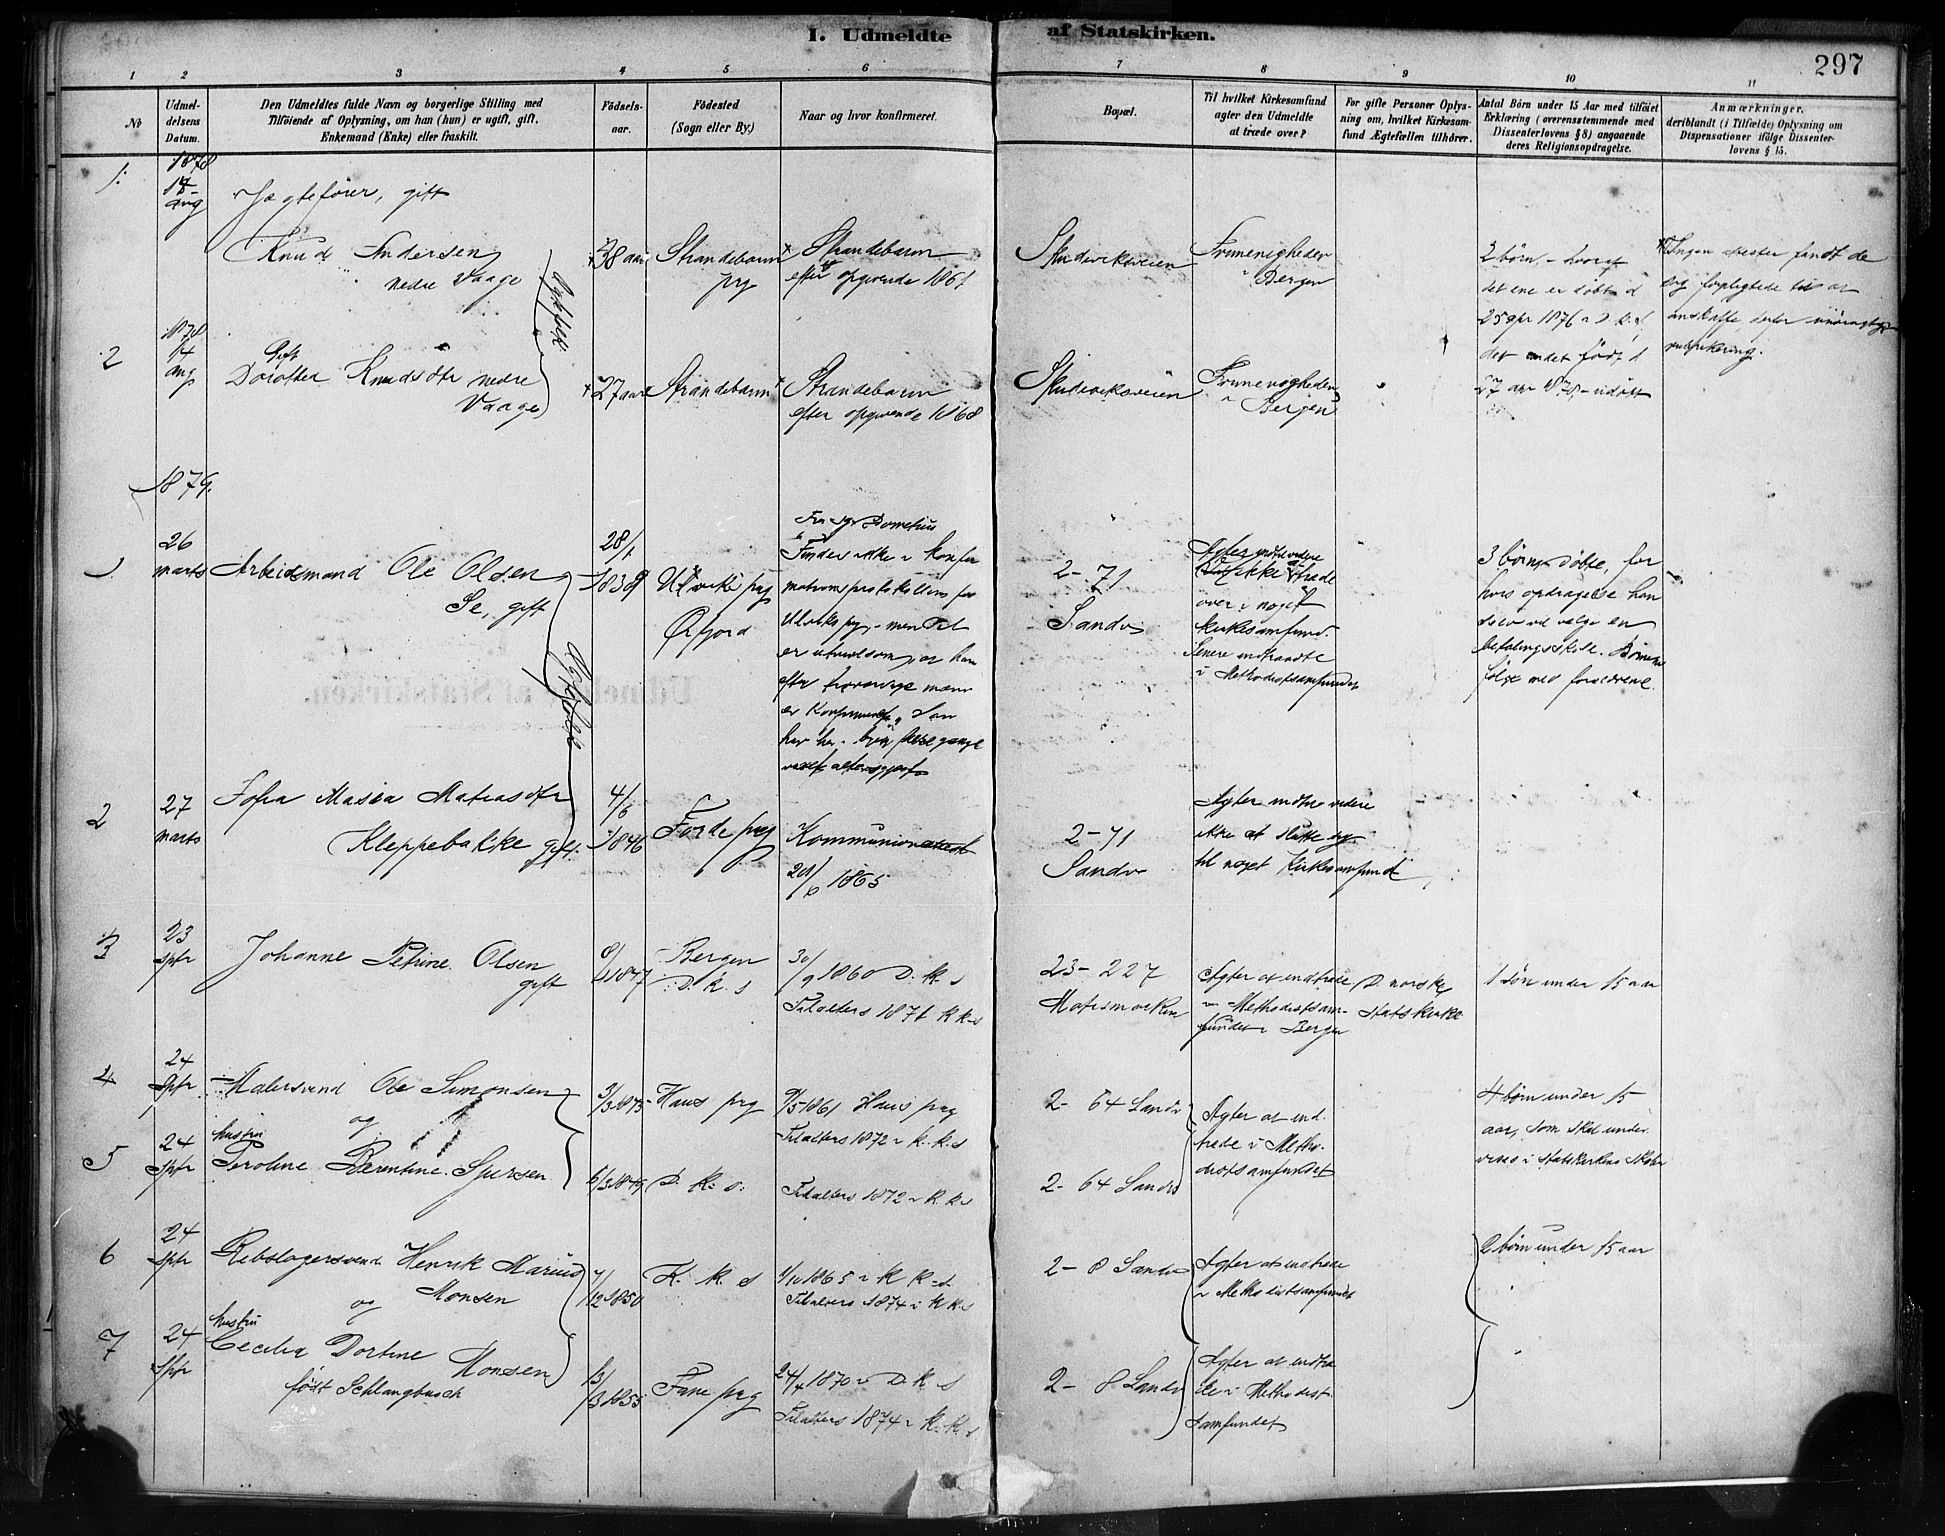 I. Udmeldte af Statskirken.
297
1 2 3 4 5 6 7 8 9 10 11
No
Udmel-
delsens
Datum.
Den Udmeldtes fulde Navn og borgerlige Stilling med
Tilföiende af Oplysning, om han (hun) er ugift, gift,
Enkemand (Enke) eller fraskilt.
Födsels-
aar.
Födested
(Sogn eller By.)
Naar og hvor konfirmeret.
Bopæl.
Til hvilket Kirkesamfund
agter den Udmeldte
at træde over?
For gifte Personer Oplys-
ning om, hvilket Kirkesam-
fund Ægtefællen tilhörer.
Antal Börn under 15 Aar med tilföiet
Erklæring (overensstemmende med
Dissenterlovens § 8) angaaende
deres Religionsopdragelse.
Anmærkninger,
deriblandt (i Tilfælde) Oplysning om
Dispensationer ifölge Dissenter-
lovens § 15.
1.
1878
14
aug
Jægtefører, gift
Knud Andersen
nedre Vaage
38 aar
Strandebarm
prg
Strandebarm
efter opgivende 1861
Skudeviksveien
Frimenigheden
i Bergen
2 børn, - hvoraf
det ene er døbt d
25 1876 i D. k.
det andet født d
27 apr 1878, - udøbt
Ingen Attester fandt de
sig forpligtede til at
anskaffe, derfor
2
1878
14
aug
Gift
Dorothea Knudsdtr nedre
Vaage
Ægtefolk
27 aar
Strandebarm
Strandebarm
efter opgivende 1868
Skudeviksveien
Frimenigheden
i Bergen
1879.
1.
26
marts
Arbeidsmand Ole Olsen
Se, gift
28/1
1838
Ulviks prg
Øifjord
Findes ikke i konfir
mationsprotokollen for
Ulviks prg, - men det
er utvivlsomt, at han
efter troværdige mænd
er konfirmeret, Han
har her i byen flere gange
været altersgjest
2-71
Sandv
Agter indtil videre
ikke at træde
over i noget
kirkesamfund.
Senere indtraadte
i Methodistsamfundet
3 børn døbte, for
hvis opdragelse han
selv vil vælge en
betalingsskole. Børnene
følge med forældrene.
2
27
marts
Sofia Maria Matiasdtr
Kleppebakke gift.
Ægtefolk
4/6
1846
Førde prg
Kommunionattest
20/6 1865
2-71
Sandv
Agter indtil videre
ikke at slutte sig
til noget Kirkesamfund
3
23
Sptr
Johanne Petrine Olsen
gift
1847
Bergen
D. k. s
30/9 1860 D. k. s
Tilalters 1871 K k-s
23-227
Marismarken
Agter at indtræde
i Methodistsam-
fundet i Bergen
D. norske
Statskirke
1 søn under 15 aar
4
24
Sptr
Malersvend Ole Simonsen
og
Haus prg
9/5 1861 Haus prg
Tilalters 1872 i k. k. s
2- 64 Sandv
Agter at ind
træde i Metho-
distsamfundet
4 børn under 15
aar, som skal under
vises i statskirkens skoler
5
24
Sptr
hustru
Peroline Berentine Sjursen
6/3 1849
D. k. s.
Tilalters 1872 i k. k s
2- 64 Sandv
6
24
Sptr
Rebslagersvend Henrik Marius
Monsen
og
7/12 1850
K. k. s
1/10 1865 i K k-s
Tilalters 1874 i k k s
2- 8 Sandv
Agter at indtræde
i Methodistsamfundet
2 børn under 15 aar
7
24
Sptr
hustru
Cecilia Dortine Monsen
født Schlangbusch
13/3 1855
Fane prg
24/4 1870 i D. k s
Tilalters 1874 i k. k. s
2- 8 Sandv
Agter at indtræ
de i Methodist
samfundet